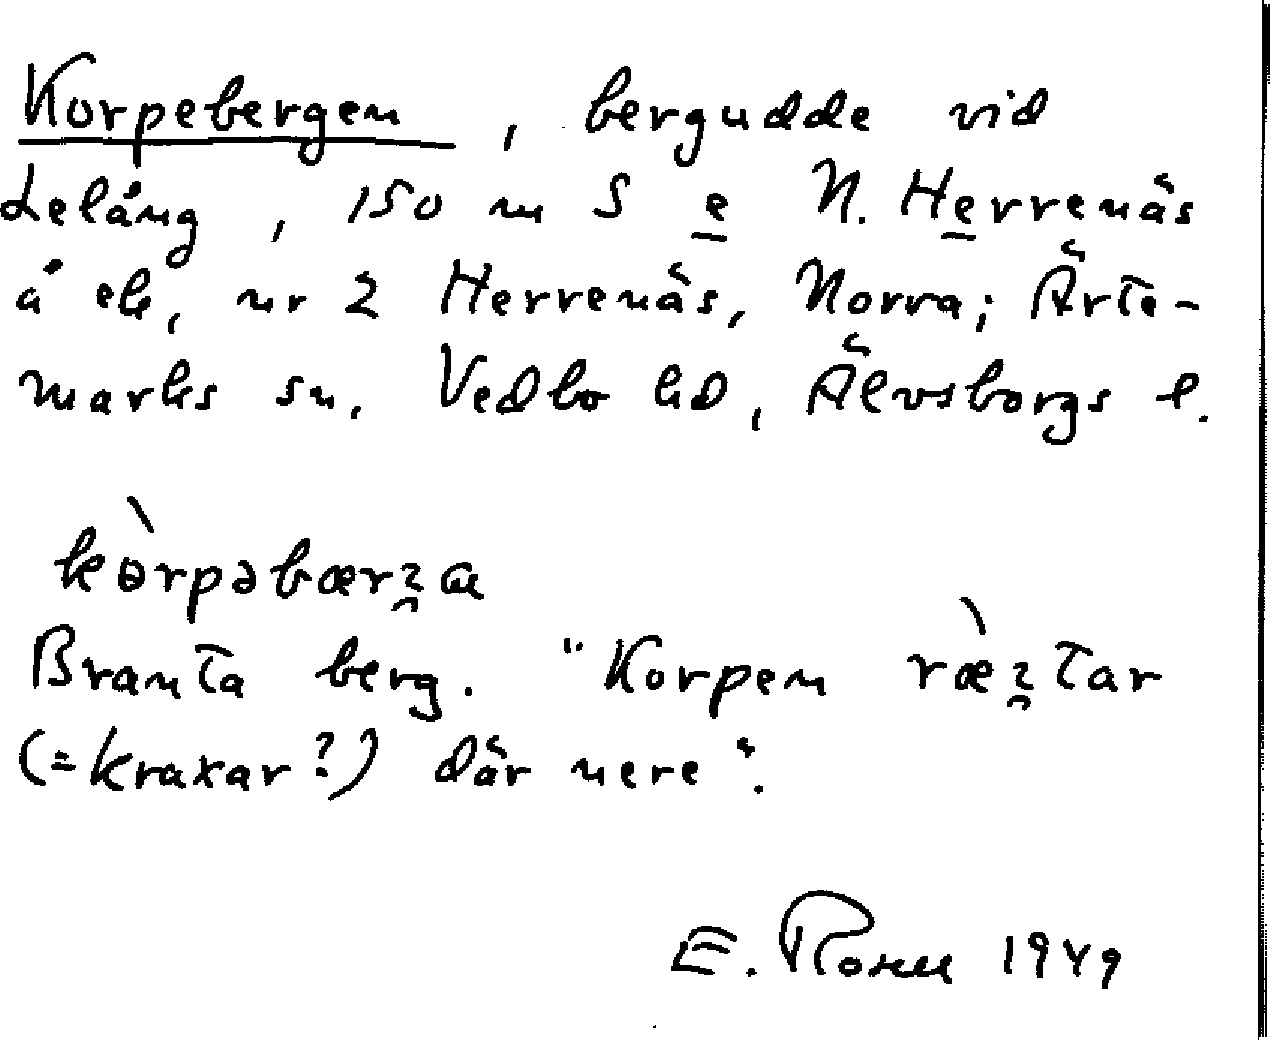 Korpebergen, bergudde vid
Lelång, 150 m S e N. Herrenäs
å ek, nr 2 Herrenäs, Norra; Ärte-
marks sn. Vedbo hd, Älvsborgs l.
kòrpəbærʒa
Branta berg. "Korpen ræ̀ʒtar
(=kraxar?) där nere".
E. 1949